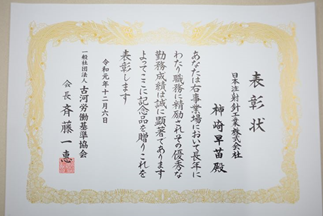 表彰状
日本注射針工業株式会社
神﨑早苗殿
あなたは右事業場において長年に
わたり職務に精励されその優秀な
勤務成績は誠に顕著であります
よってここに記念品を贈りこれを
表彰します
令和元年十二月六日
一般社団法人
古河労働基準協会
会長 斉藤一惠